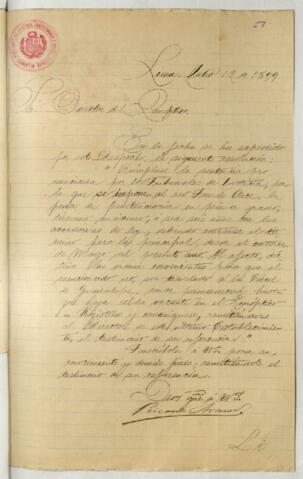 Lima, Julio 12 de 1899
Sr. Director del Panóptico
En la fecha se ha expedido
por este Despacho, la siguiente resolución:
"Cúmplase la sentencia pro-
nunciada por los Tribunales de Justicia, por
la que se impone al reo Juan de Dios
la pena de Penitenciaría en primer grado,
término máximo, ó sea seis años con las
accesorias de ley, debiendo contarse el tér-
mino para la principal desde el catorce
de Marzo del presente año. Al efecto, dic-
tense las órdenes convenientes para que el
mencionado reo, sea trasladado á la Cárcel
de Guadalupe, en la permanecerá hasta
que haya celda vacante en el Panóptico.
Regístrese y comuníquese, remitiéndose
al Director de este último Establecimien-
to, el testimonio de su referencia."
Trascríbola á US. para su
conocimiento y demás fines, remitiéndole el
testimonio de su referencia.
Dios gue. á US.
Ricardo